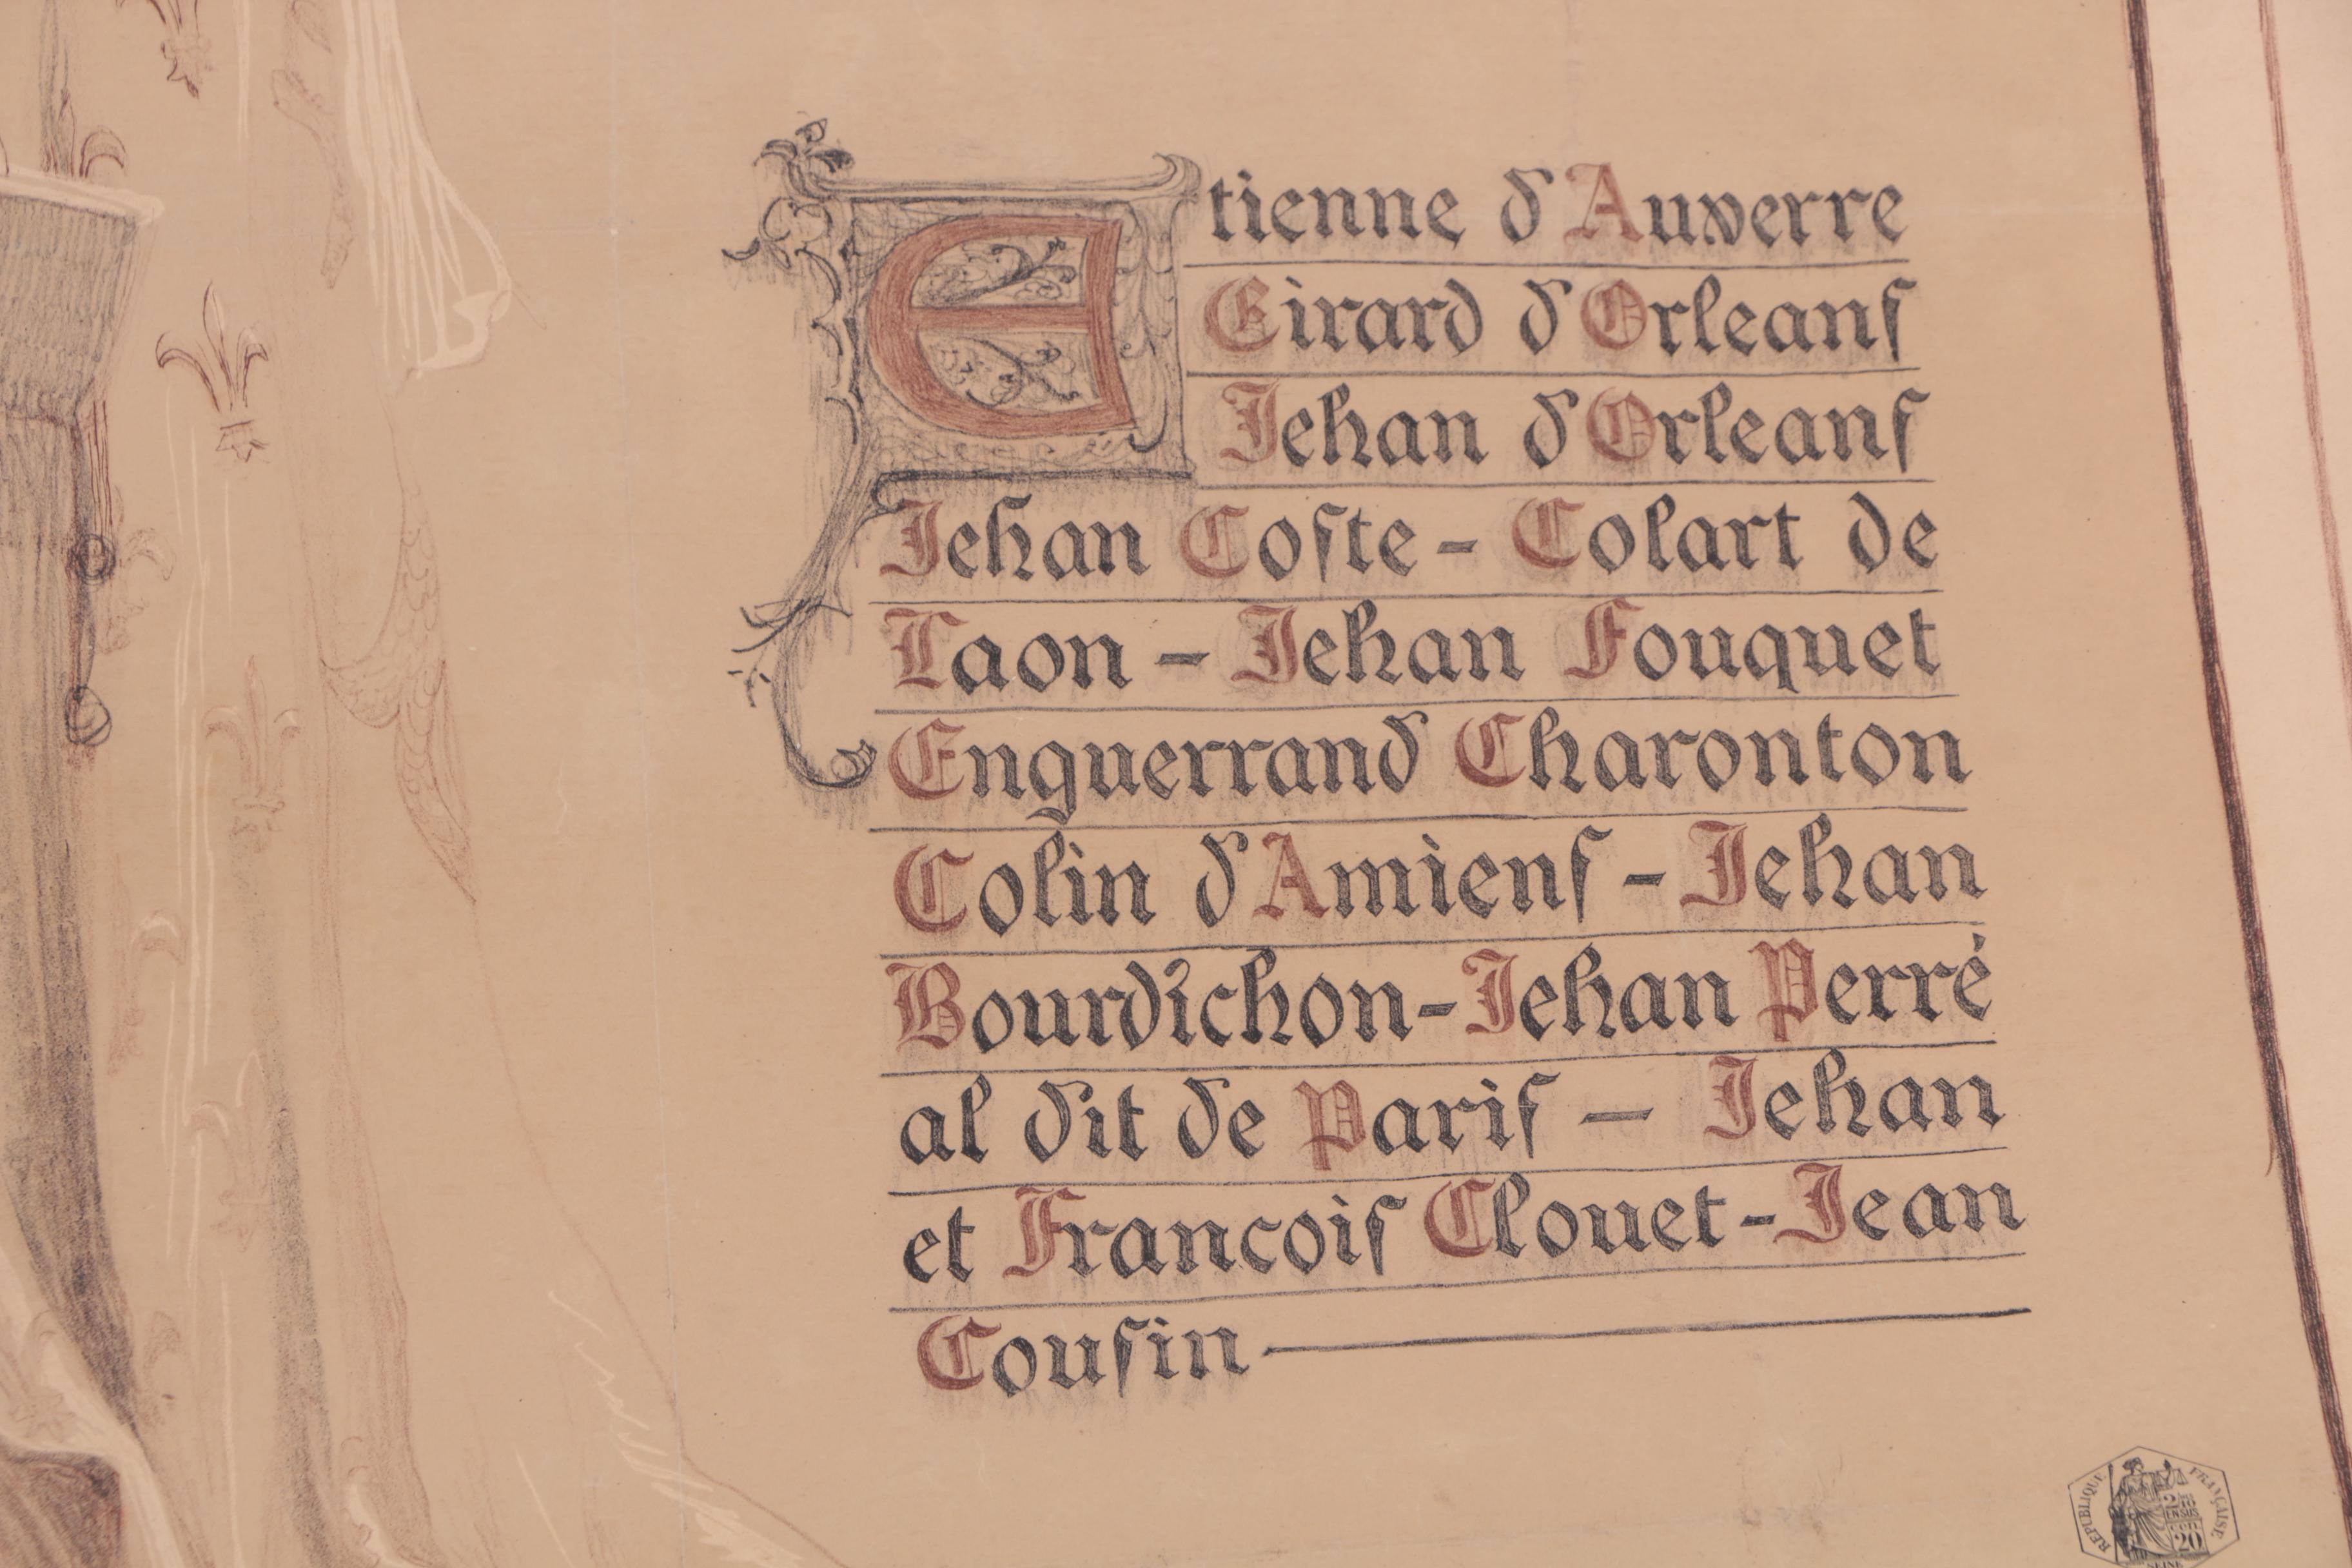 Etienne d'Auxerre
Girard d'Orleanſ
Jehan d'Orleanſ
Jehan Coſte - Colart de
Laon - Jehan Fouquet
Enguerrand Charonton
Colin d'Amienſ - Jehan
Bourdichon - Jehan Perré
al dit de Pariſ — Jehan
et Francoiſ Clouet - Jean
Couſin
RÉPUBLIQUE FRANÇAISE
20
SEINE